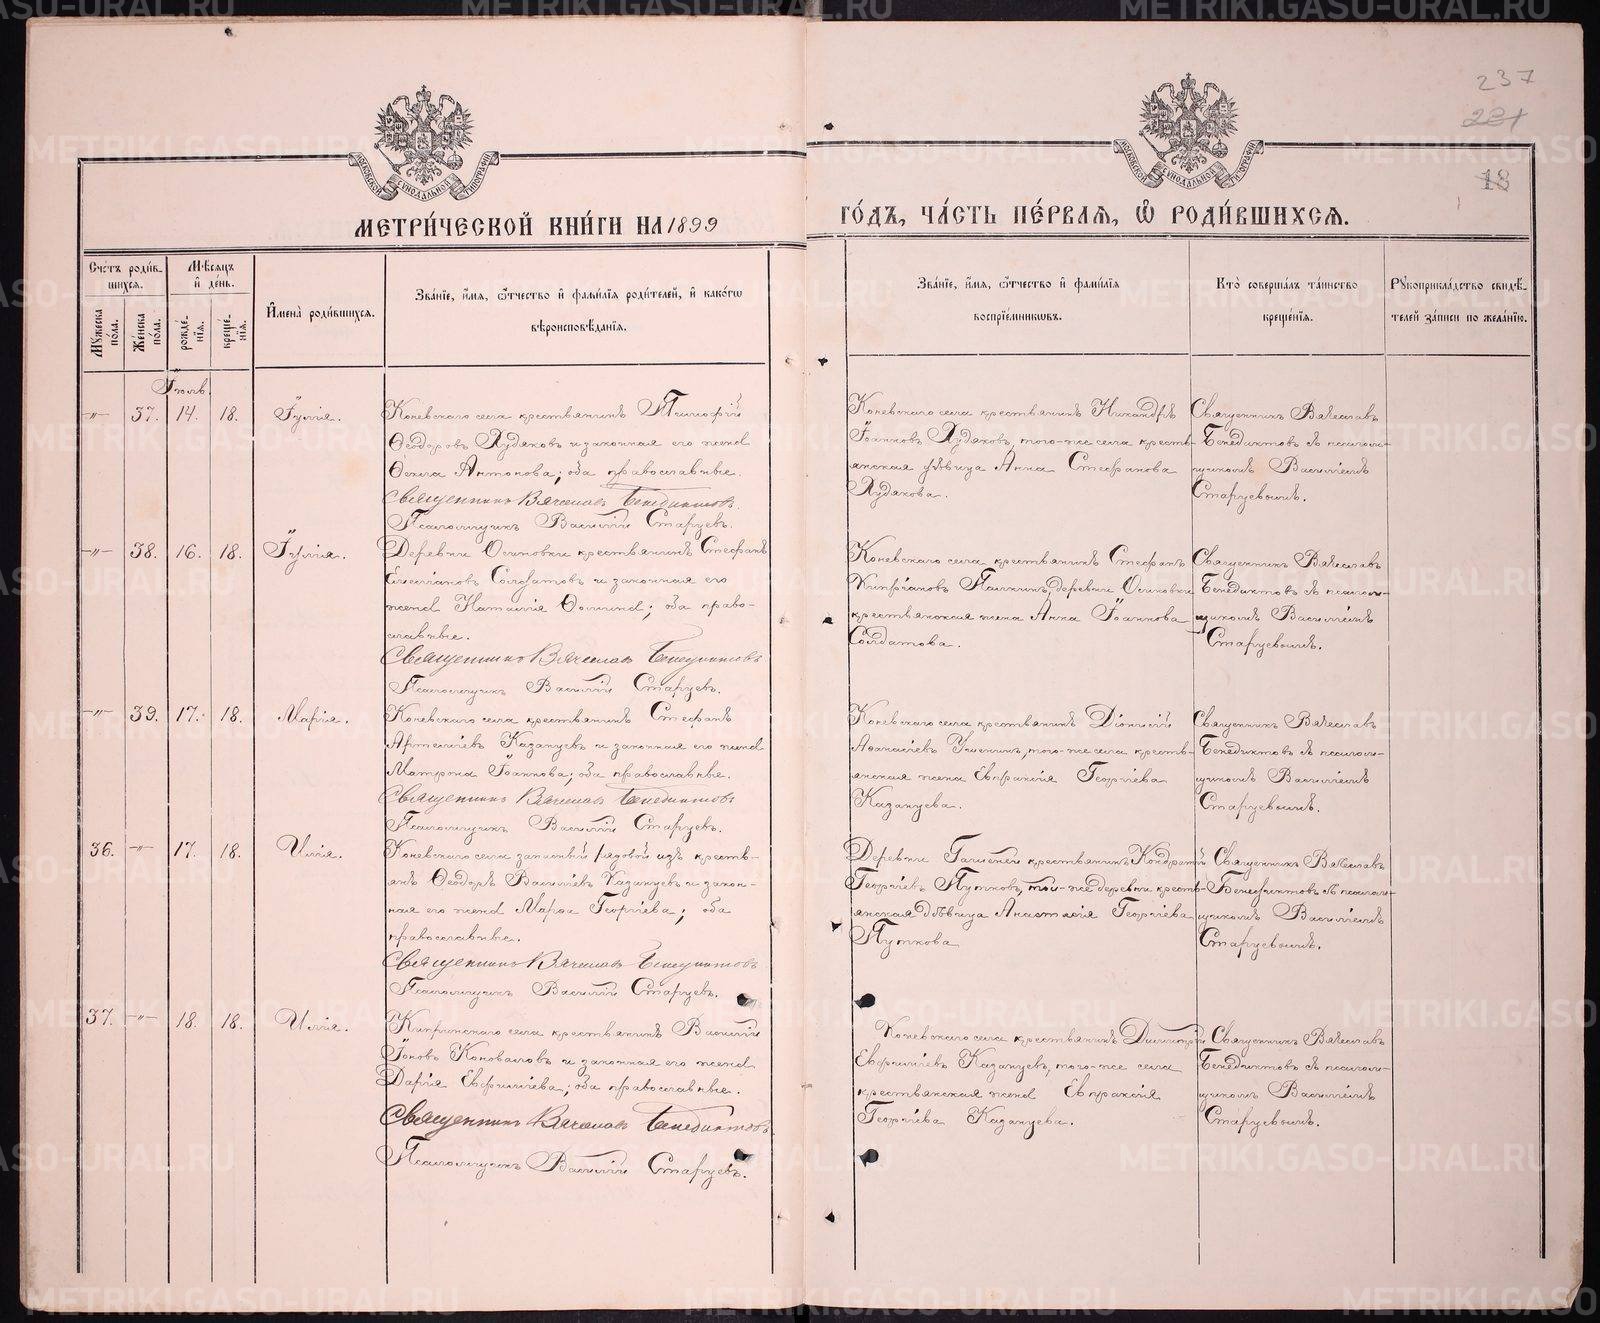 237
281
18
МЕТРИ́ЧЕСКОЙ КНИ́ГИ НА 1899 ГО́ДЪ, ЧА́СТЬ ПЕ́РВАЯ, Ѡ РОДИ́ВШИХСЯ.
Сче́тъ роди́в-
шихся.
Мѣ́сяцъ
и҆ де́нь.
И҆мена̀ роди́вшихся.
Зва́нїе, и҆́мя, ѻ҆́тчество и҆ фами́лїя роди́телей, и҆ како́гѡ
вѣроисповѣ́данїя.
Зва́нїе, и҆́мя, ѻ҆́тчество и҆ фами́лїя
воспрїе́мниковъ.
Кто̀ соверша́лъ та́инство
креще́нїя.
Рꙋкоприкла́дство свидѣ́-
телей за́писи по жела́нїю.
Мꙋ́жеска
по́ла.
Же́нска
по́ла.
рожде́-
нїя.
креще́-
нїя.
Іюль.
-"- 37. 14. 18. Іулія.
Коневскаго села крестьянинъ Тимофій
Ѳеодоровъ Худяковъ и законная его жена
Ѳекла Антонова; оба православные.
Священникъ Вячеславъ Бенедиктовъ.
Псаломщикъ Василій Старцевъ.
Коневскаго села крестьянинъ Никандръ
Іоанновъ Худяковъ, того-же села кресть-
янская дѣвица Анна Стефанова
Худякова.
Священникъ Вячеславъ
Бенедиктовъ съ псалом-
щикомъ Василіемъ
Старцевымъ.
-"- 38. 16. 18. Іулія.
Деревни Осиновки крестьянинъ Стефанъ
Емеліановъ Солдатовъ и законная его
жена Наталія Ѳомина; оба право-
славные.
Священникъ Вячеславъ Бенедиктовъ
Псаломщикъ Василій Старцевъ.
Коневскаго села крестьянинъ Стефанъ
Кипріановъ Палкинъ, деревни Осиновки
крестьянская жена Анна Іоаннова
Солдатова.
Священникъ Вячеславъ
Бенедиктовъ съ псалом-
щикомъ Василіемъ
Старцевымъ.
-"- 39. 17. 18. Марія.
Коневскаго села крестьянинъ Стефанъ
Артеміевъ Казанцевъ и законная его жена
Матрона Іоаннова; оба православные.
Священникъ Вячеславъ Бенедиктовъ
Псаломщикъ Василій Старцевъ.
Коневскаго села крестьянинъ Діонисій
Аѳанасіевъ, того-же села кресть-
янская жена Евпраксія Георгіева
Казанцева.
Священникъ Вячеславъ
Бенедиктовъ съ псалом-
щикомъ Василіемъ
Старцевымъ.
36. -"- 17. 18. Илія.
Коневскаго села запасный рядовой изъ кресть-
янъ Ѳеодоръ Василіевъ Казанцевъ и закон-
ная его жена Марѳа Георгіева; оба
православные.
Священникъ Вячеславъ Бенедиктовъ
Псаломщикъ Василій Старцевъ.
Деревни крестьянинъ Кондратій
Георгіевъ Путковъ, той-же деревни кресть-
янская дѣвица Анастасія Георгіева
Путкова
Священникъ Вячеславъ
Бенедиктовъ съ псалом-
щикомъ Василіемъ
Старцевымъ.
37. -"- 18. 18. Илія.
Кипринскаго села крестьянинъ Василій
Іоновъ Коноваловъ и законная его жена
Дарія Евфиміева; оба православные.
Священникъ Вячеславъ Бенедиктовъ
Псаломщикъ Василій Старцевъ.
Коневскаго села крестьянинъ Димитрій
Евфиміевъ Казанцевъ, того-же села
крестьянская жена Евпраксія
Георгіева Казанцева.
Священникъ Вячеславъ
Бенедиктовъ съ псалом-
щикомъ Василіемъ
Старцевымъ.